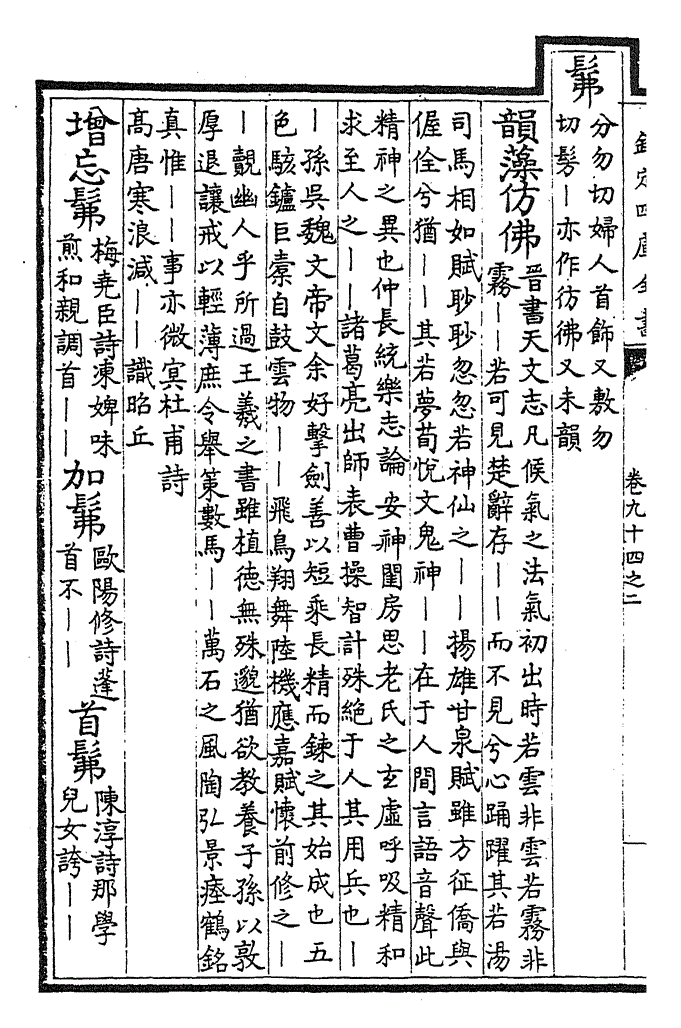 欽定四庫全書　卷九十四之二　一
髴 分勿切婦人首飾又敷勿
切髣丨亦作彷彿又未韻
韻藻仿佛 晉書天文志凡候氣之法氣初出時若雲非雲若霧非
霧丨丨若可見楚辭存丨丨而不見兮心踊躍其若湯
司馬相如賦眇眇忽忽若神仙之丨丨揚雄甘泉賦雖方征僑與
偓佺兮猶丨丨其若夢荀悦文鬼神丨丨在于人間言語音聲此
精神之異也仲長統樂志論安神閨房思老氏之玄虛呼吸精和
求至人之丨丨諸葛亮出師表曹操智計殊絶于人其用兵也丨
丨孫吳魏文帝文余好擊劍善以短乘長精而鍊之其始成也五
色駭鑪巨橐自鼓雲物丨丨飛鳥翔舞陸機應嘉賦懷前修之丨
丨覿幽人乎所過王羲之書雖植德無殊邈猶欲教養子孫以敦
厚退讓戒以輕薄庶令舉策數馬丨丨萬石之風陶弘景瘞鶴銘
真惟丨丨事亦微冥杜甫詩
高唐寒浪減丨丨識昭丘
增忘髴 梅堯臣詩凍婢味
煎和親調首丨丨
加髴 歐陽修詩蓬
首不丨丨
首髴 陳淳詩那學
兒女誇丨丨